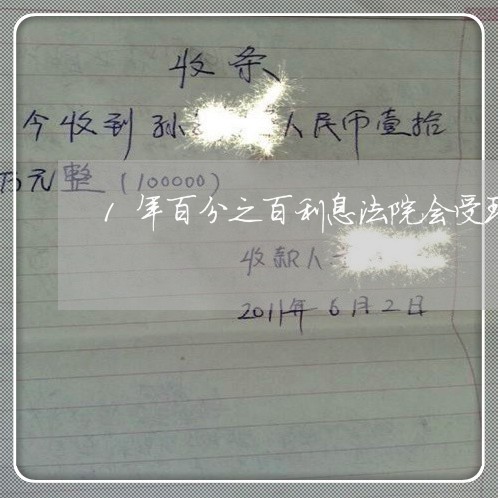 收条
今收到孙 人民币壹拾
万元整(100000)
1年百分之百利息法院会受理
收款人
2011年6月2日